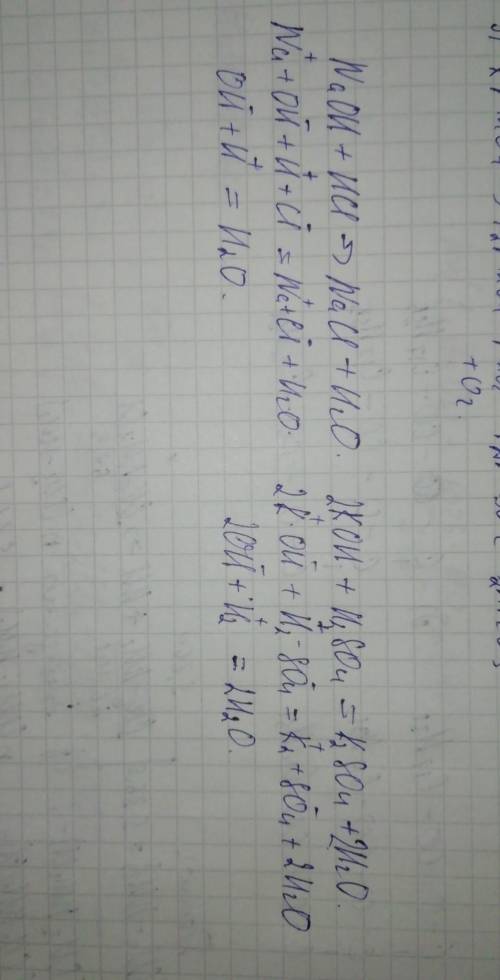 + O₂.
NaOH + HCl => NaCl + H₂O.
Na⁺ + OH⁻ + H⁺ + Cl⁻ = Na⁺ + Cl⁻ + H₂O.
OH⁻ + H⁺ = H₂O.
2KOH + H₂SO₄ = K₂SO₄ + 2H₂O.
2K⁺ · OH⁻ + H₂⁺ · SO₄⁻ = K₂⁺ + SO₄⁻ + 2H₂O
2OH⁻ + H₂⁺ = 2H₂O.